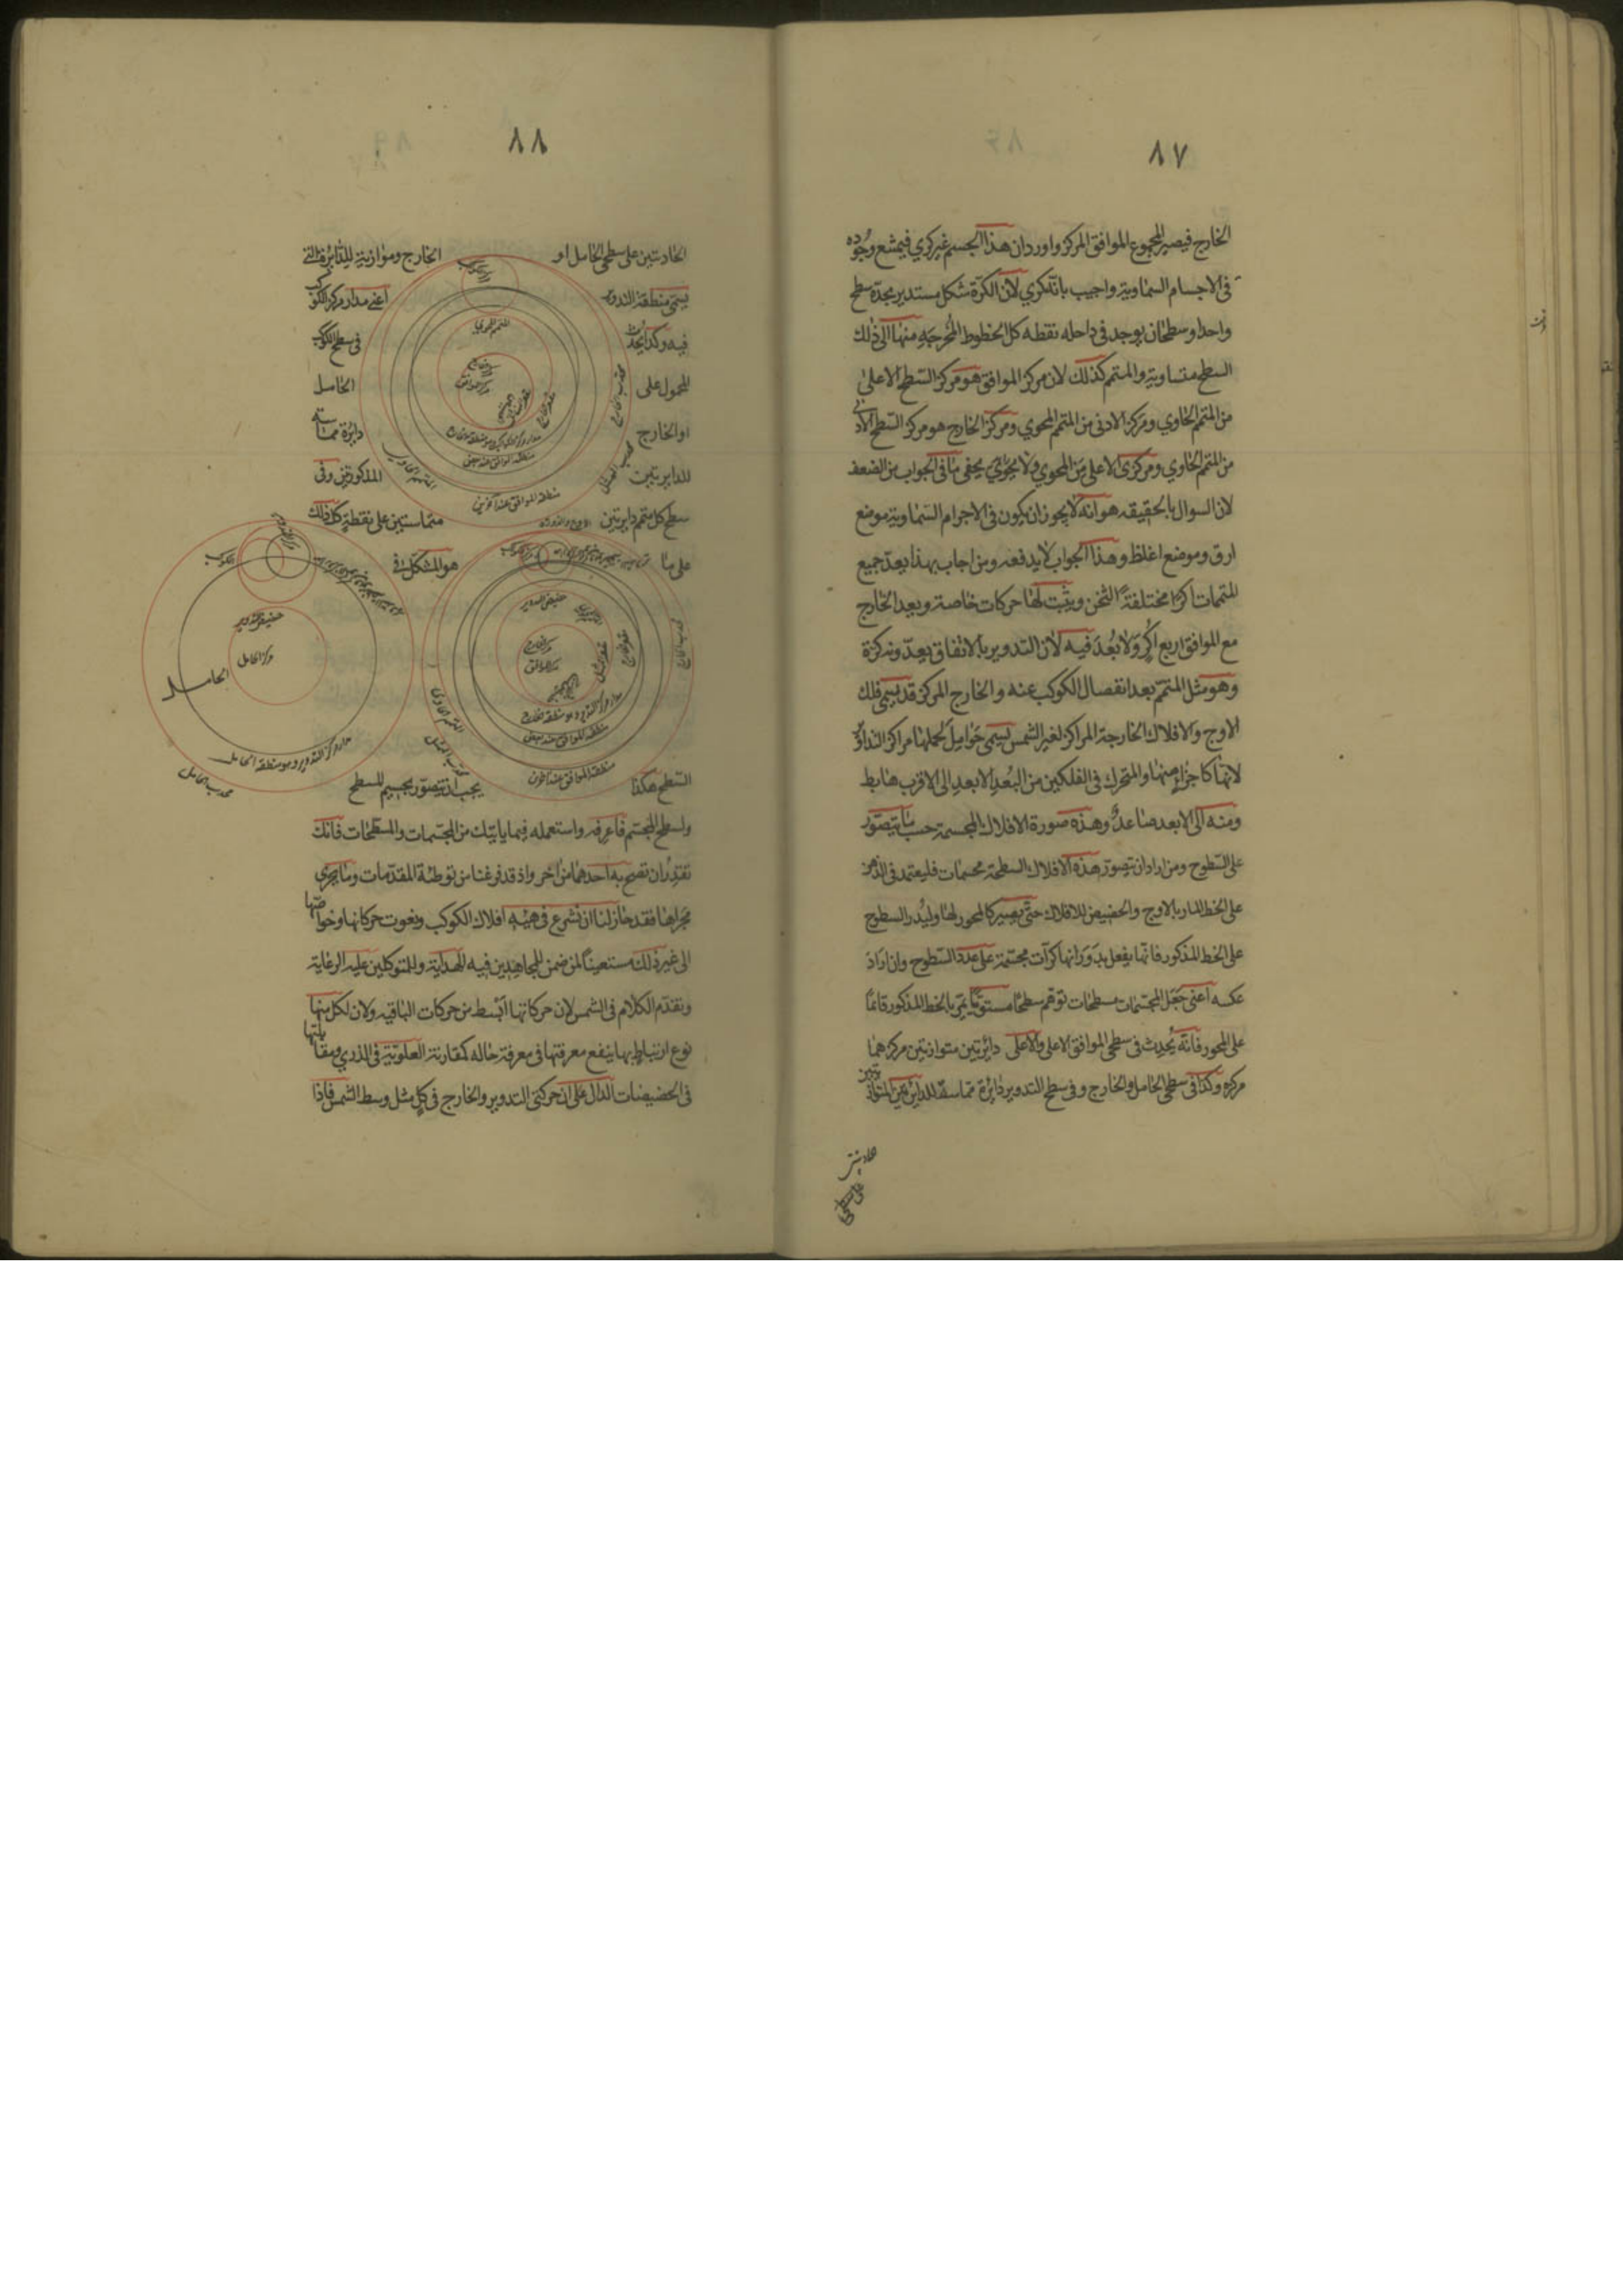 ٨٧
الخارج فيصير المجموع الموافق المركز واورد ان هذا الجسم غير كري فيمتنع وجوده
فى الاجسام السماوية واجيب بانه كري لان الكرة شكل مستدير يحده سطح
واحد او سطحان يوجد فى داخله نقطه كل الخطوط المخرجة منها الى ذلك
السطح متساوية والمتمم كذلك لان مركز الموافق هو مركز السطح الاعلى
من المتمم الحاوي ومركز الادنى من المتمم المحوي ومركز الخارج هو مركز السطح الادنى
من المتمم الحاوي ومركز الاعلى من المحوي ولا يخفى ما فى الجواب من الضعف
لان السوال بالحقيقه هو انه لا يجوز ان يكون فى الاجرام السماوية موضع
ارق وموضع اغلظ وهذا الجواب لا يدفعه ومن اجاب بهذا يعد جميع
المتممات اكرا مختلفة الثخن ويثبت لها حركات خاصة ويعد الخارج
مع الموافق اربع اكر ولا بعد فيه لان التدوير بالاتفاق يعد كرة
وهو مثل المتمم بعد انفصال الكوكب عنه والخارج المركز قد يسمى فلك
الاوج والافلاك الخارجة المراكز لغير الشمس يسمى حوامل لحملها مراكز التداوير
لانها كاجزاء منها والمتحرك فى الفلكين من البعد الابعد الى الاقرب هابط
ومنه الى الابعد صاعد وهذه صورة الافلاك المجسمة حسب ما يتصور
على السطوح ومن اراد ان يتصور هذه الافلاك السطحة مجسمات فليعتمد فى الذهن
على الخط المار بالاوج والحضيض للافلاك حتى يصير كالمحور لها وليدر السطوح
على الخط المذكور فانها يفعل بدورانها كرات مجسمة على عدد السطوح وان اراد
عكسه اعنى جعل المجسمات مسطحات توهم سطحا مستويا يمر بالخط المذكور قائما
على المحور فانه يحدث فى سطحي الموافق الاعلى والاعلى دايرتين متوازيتين مركزهما
مركزه وكذا فى سطحي الحامل والخارج وفى سطح التدوير دايرة مماسة للدايرتين المتوازيتين
على سطحي
٨٨
الحادثتين على سطحي الحامل او الخارج وموازية للدائرة التى
يسمى منطقة التدوير اعنى مدار مركز الكوكب
فيه وكذا يحدث فى سطح الكوكب
المحمول على الحامل
او الخارج دايرة مماسة
للدايرتين المذكورتين وفى
سطح كل متمم دايرتين متماستين على نقطة كل ذلك
على ما هو المشكل فى
السطح هكذا يجب ان يتصور تجسيم المسطح
وتسطيح المجسم فاعرفه واستعمله فيما ياتيك من المجسمات والمسطحات فانك
تقدر ان تضح به احدهما من اخر واذ قد فرغنا من توطئة المقدمات وما يجري
مجراها فقد حان لنا ان نشرع فى هيئة افلاك الكوكب ونعوت حركاتها وخواصها
الى غير ذلك مستعينا لمن ضمن للمجاهدين فيه الهداية وللمتوكلين عليه الرعاية
ونقدم الكلام فى الشمس لان حركاتها ابسط من حركات الباقيه ولان لكل منها
نوع ارتباط بها ينفع معرفتها فى معرفة حاله كمقارنة العلوية فى الذري ومقابلتها
فى الحضيضات الدال على ان حركتي التدوير والخارج فى كل مثل وسط الشمس فاذا
مركز الكوكب
المتمم المحوي
مركز الخارج
مركز الموافق
محدب الخارج
المتمم الحاوي
منطقة الموافق عند بعض
منطقة الموافق عند آخرين
حضيض التدوير
مركز الخارج
مركز الموافق
مدار مركز التدوير وهو منطقة الخارج
منطقة الموافق عند بعض
منطقة الموافق عند اخرين
المتمم الحاوي
محدب الممثل
مركز التدوير
الكوكب
حضيض التدوير
مركز الحامل
الحامل
مدار مركز التدوير وهو منطقة الحامل
محدب الحامل